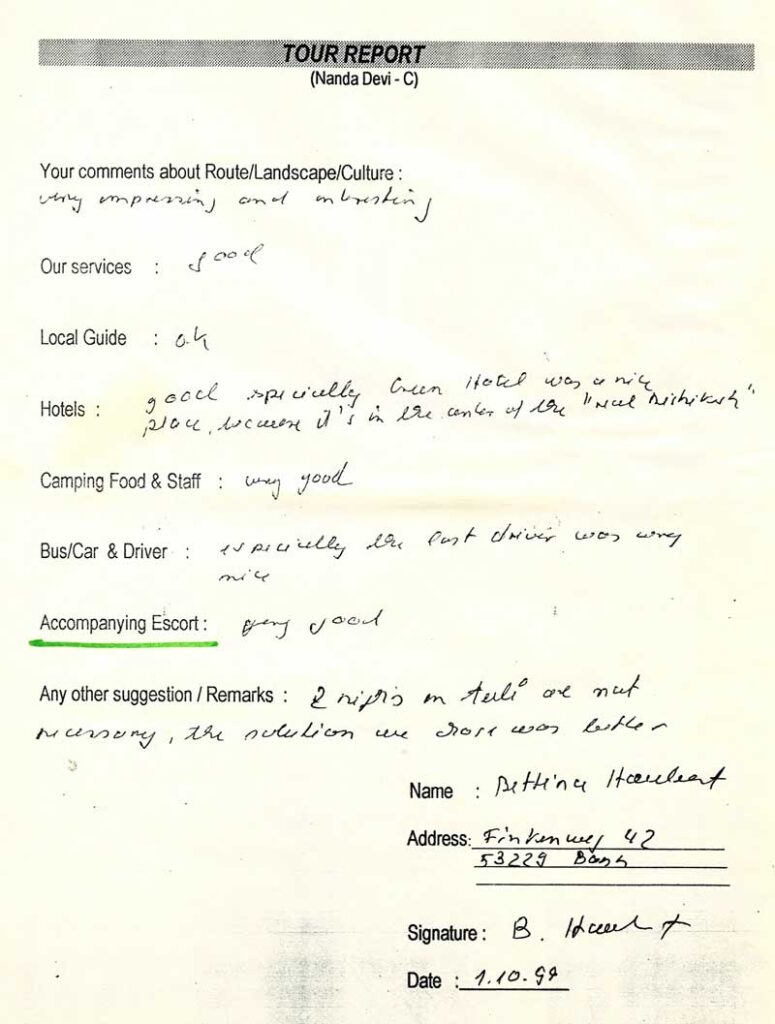 TOUR REPORT
(Nanda Devi - C)
Your comments about Route/Landscape/Culture :
very impressing and interesting
Our services : good
Local Guide : o.k
Hotels : good especially Green Hotel was a nice
place, because it's in the center of the "real Rishikesh"
Camping Food & Staff : very good
Bus/Car & Driver : especially the last driver was very
nice
Accompanying Escort : very good
Any other suggestion / Remarks : 2 nights in are not
necessary, the solution we chose was better
Name : Bettina
Address: Finkenweg 42
53229 Bonn
Signature : B.
Date : 1.10.99